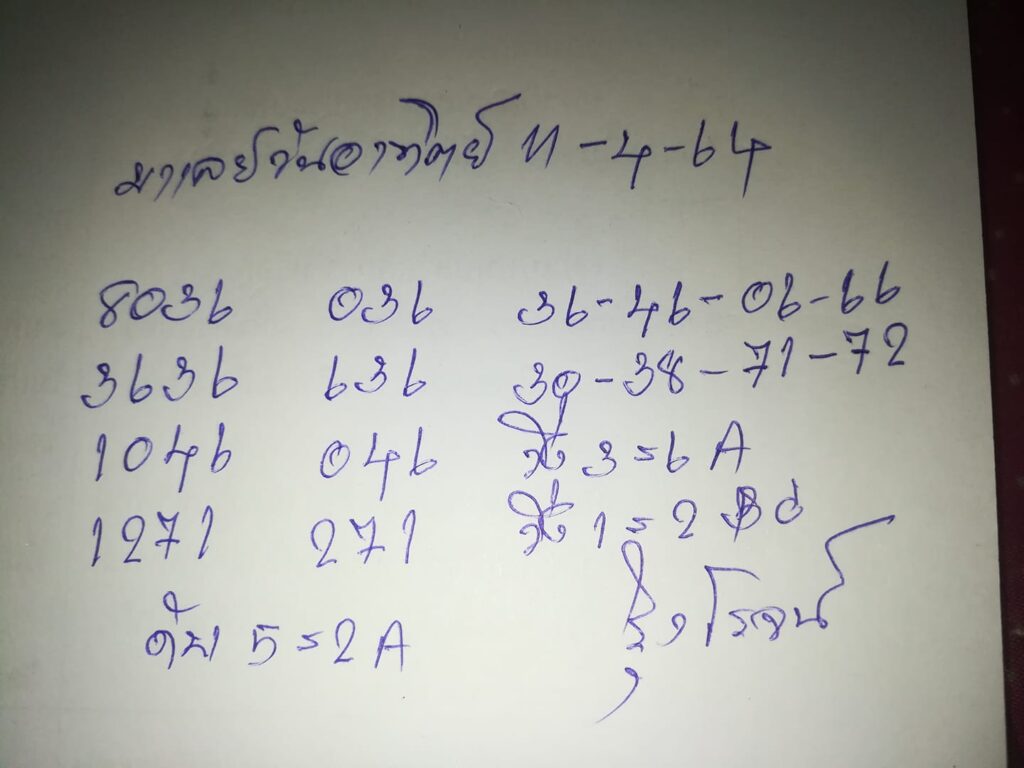 มาเลย์วันอาทิตย์ 11-4-64
8036 036 36-46-06-66
3636 636 39-38-71-72
1046 046 วิ่ง 3=6 A
1271 271 วิ่ง 1=2 Bd
ดับ 5=2 A
รุ่งโรจน์